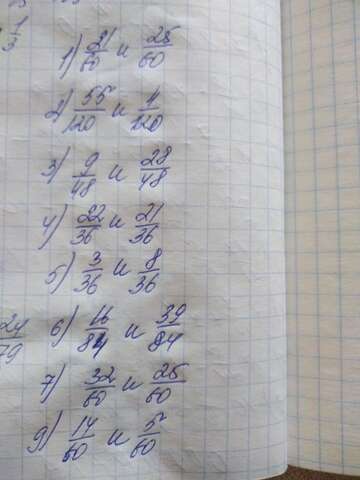 1/3
1) 21/60 и 25/60
2) 55/120 и 4/120
3) 9/48 и 28/48
4) 22/36 и 21/36
5) 3/36 и 8/36
24/79
6) 16/84 и 39/84
7) 32/60 и 25/60
9) 14/60 и 5/60